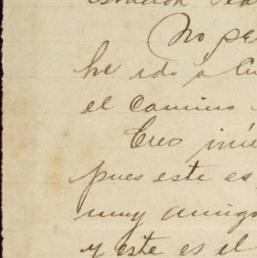 No pe
he ido á Cu
el camino
Creo inú
pues este es
muy amigo
y este es el